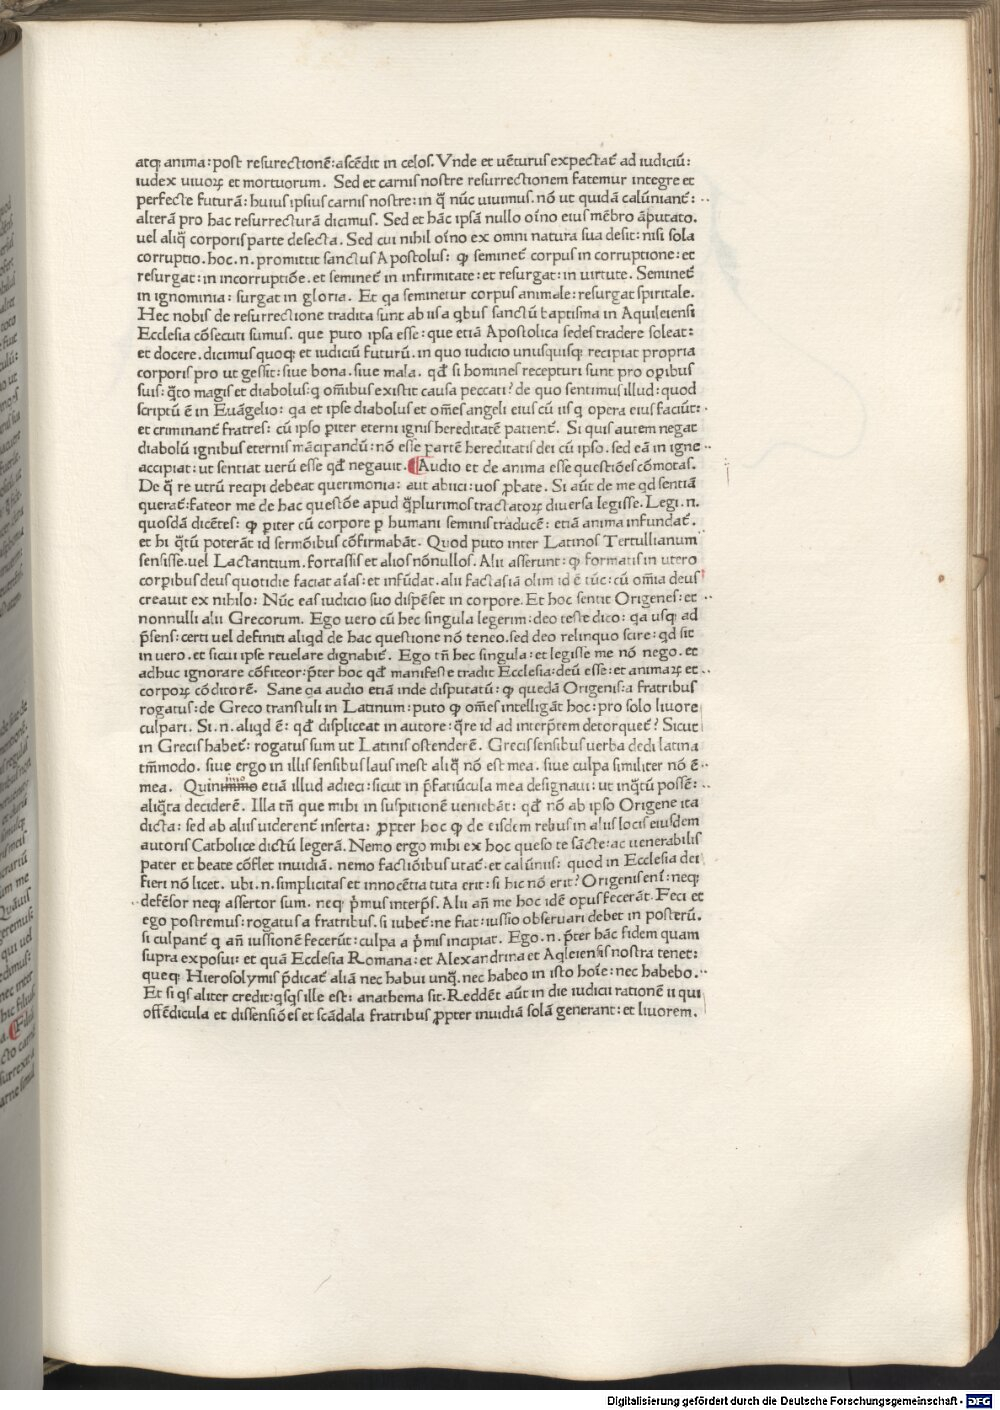 atq; anima: post resurectionē: ascēdit in celos. Vnde et uēturus expectat᷒ ad iudiciū:
iudex uiuoꝝ et mortuorum. Sed et carnis nostre resurrectionem fatemur integre et
perfecte futurā: huius ipsius carnis nostre: in q̄ nūc uiuimus. nō ut quidā calūniant᷒:
alterā pro hac resurrecturā dicimus. Sed et hāc ipsā nullo oīno eius mēbro āputato.
uel aliq̄ corporis parte desecta. Sed cui nihil oīno ex omni natura sua desit: nisi sola
corruptio. hoc .n. promittit sanctus Apostolus: ꝙ seminet᷒ corpus in corruptione: et
resurgat: in incorruptiōe. et seminet᷒ in infirmitate: et resurgat: in uirtute. Seminet᷒
in ignominia: surgat in gloria. Et qa seminetur corpus animale: resurgat spiritale.
Hec nobis de resurrectione tradita sunt ab iis a qbus sanctū baptisma in Aquileiensi
Ecclesia cōsecuti sumus. que puto ipsa esse: que etiā Apostolica sedes tradere soleat:
et docere. dicimus quoq; et iudiciū futurū. in quo iudicio unusquisq; recipiat propria
corporis pro ut gessit: siue bona. siue mala. qđ si homines recepturi sunt pro oꝑibus
suis: q̄to magis et diabolus: q om̄ibus existit causa peccati? de quo sentimus illud: quod
scriptū ē in Euāgelio: qa et ipse diabolus et om̄es angeli eius cū iis q opera eius faciūt:
et criminant᷒ fratres: cū ipso ꝑiter eterni ignis hereditatē patient᷒. Si quis autem negat
diabolū ignibus eternis mācipandū: nō esse partē hereditatis dei cū ipso. sed eā in igne
accipiat: ut sentiat uerū esse qđ negauit. ¶Audio et de anima esse questiōes cōmotas.
De q̄ re utrū recipi debeat querimonia: aut abiici: uos ꝓbate. Si aūt de me qd sentiā
querat᷒: fateor me de hac questōe apud q̄plurimos tractatoꝝ diuersa legisse. Legi .n.
quosdā dicētes: ꝙ ꝑiter cū corpore ꝑ humani seminis traducē: etiā anima infundat᷒.
et hi q̄tū poterāt id sermōibus cōfirmabāt. Quod puto inter Latinos Tertullianum
sensisse. uel Lactantium. fortassis et alios nōnullos. Alii asserunt: ꝙ formatis in utero
corꝑibus deus quotidie faciat aīas: et infūdat. alii factas iā olim id ē tūc: cū om̄ia deus
creauit ex nihilo: Nūc eas iudicio suo dispēset in corpore. Et hoc sentit Origenes: et
nonnulli alii Grecorum. Ego uero cū hec singula legerim: deo teste dico: qa usq; ad
p̄sens: certi uel definiti aliqd de hac questione nō teneo. sed deo relinquo scire: qd sit
in uero. et si cui ipse reuelare dignabit᷒. Ego tn̄ hec singula: et legisse me nō nego. et
adhuc ignorare cōfiteor: p̄ter hoc qđ manifeste tradit Ecclesia: deū esse: et animaꝝ et
corpoꝝ cōditorē. Sane qa audio etiā inde disputatū: ꝙ quedā Origenis: a fratribus
rogatus: de Greco transtuli in Latinum: puto ꝙ om̄es intelligāt hoc: pro solo liuore
culpari. Si .n. aliqd ē: qđ displiceat in autore: q̄re id ad interp̄tem detorquet᷒? Sicut
in Grecis habet᷒: rogatus sum ut Latinis ostenderē. Grecis sensibus uerba dedi latina
tm̄modo. siue ergo in illis sensibus laus inest aliq̄ nō est mea. siue culpa similiter nō ē
mea. Quinimmo etiā illud adieci: sicut in p̄fatiūcula mea designaui: ut inq̄tū possē:
aliq̄ta deciderē. Illa tn̄ que mihi in suspitionē ueniebāt: qđ nō ab ipso Origene ita
dicta: sed ab aliis uiderent᷒ inserta: ꝓpter hoc ꝙ de eisdem rebus in aliis locis eiusdem
autoris Catholice dictū legerā. Nemo ergo mihi ex hoc queso te sācte: ac uenerabilis
pater et beate cōflet inuidiā. nemo factiōibus utat᷒. et calūniis: quod in Ecclesia dei
fieri nō licet. ubi .n. simplicitas et innocētia tuta erit: si hic nō erit? Origenis eni: neq;
defēsor neq; assertor sum. neq; p̄mus interp̄s. Alii añ me hoc idē opus fecerāt. Feci et
ego postremus: rogatus a fratribus. si iubet᷒: ne fiat: iussio obseruari debet in posterū.
si culpant᷒ q añ iussionē fecerūt: culpa a p̄mis incipiat. Ego .n. p̄ter hāc fidem quam
supra exposui: et quā Ecclesia Romana: et Alexandrina et Aqleiensis nostra tenet:
queq; Hierosolymis p̄dicat᷒ aliā nec habui unq̄. nec habeo in isto hoīe: nec habebo.
Et si qs aliter credit: qsqs ille est: anathema sit. Reddēt aūt in die iudicii rationē ii qui
offēdicula et dissensiōes et scādala fratribus ꝓpter inuidiā solā generant: et liuorem.
Digitalisierung gefördert durch die Deutsche Forschungsgemeinschaft - DFG